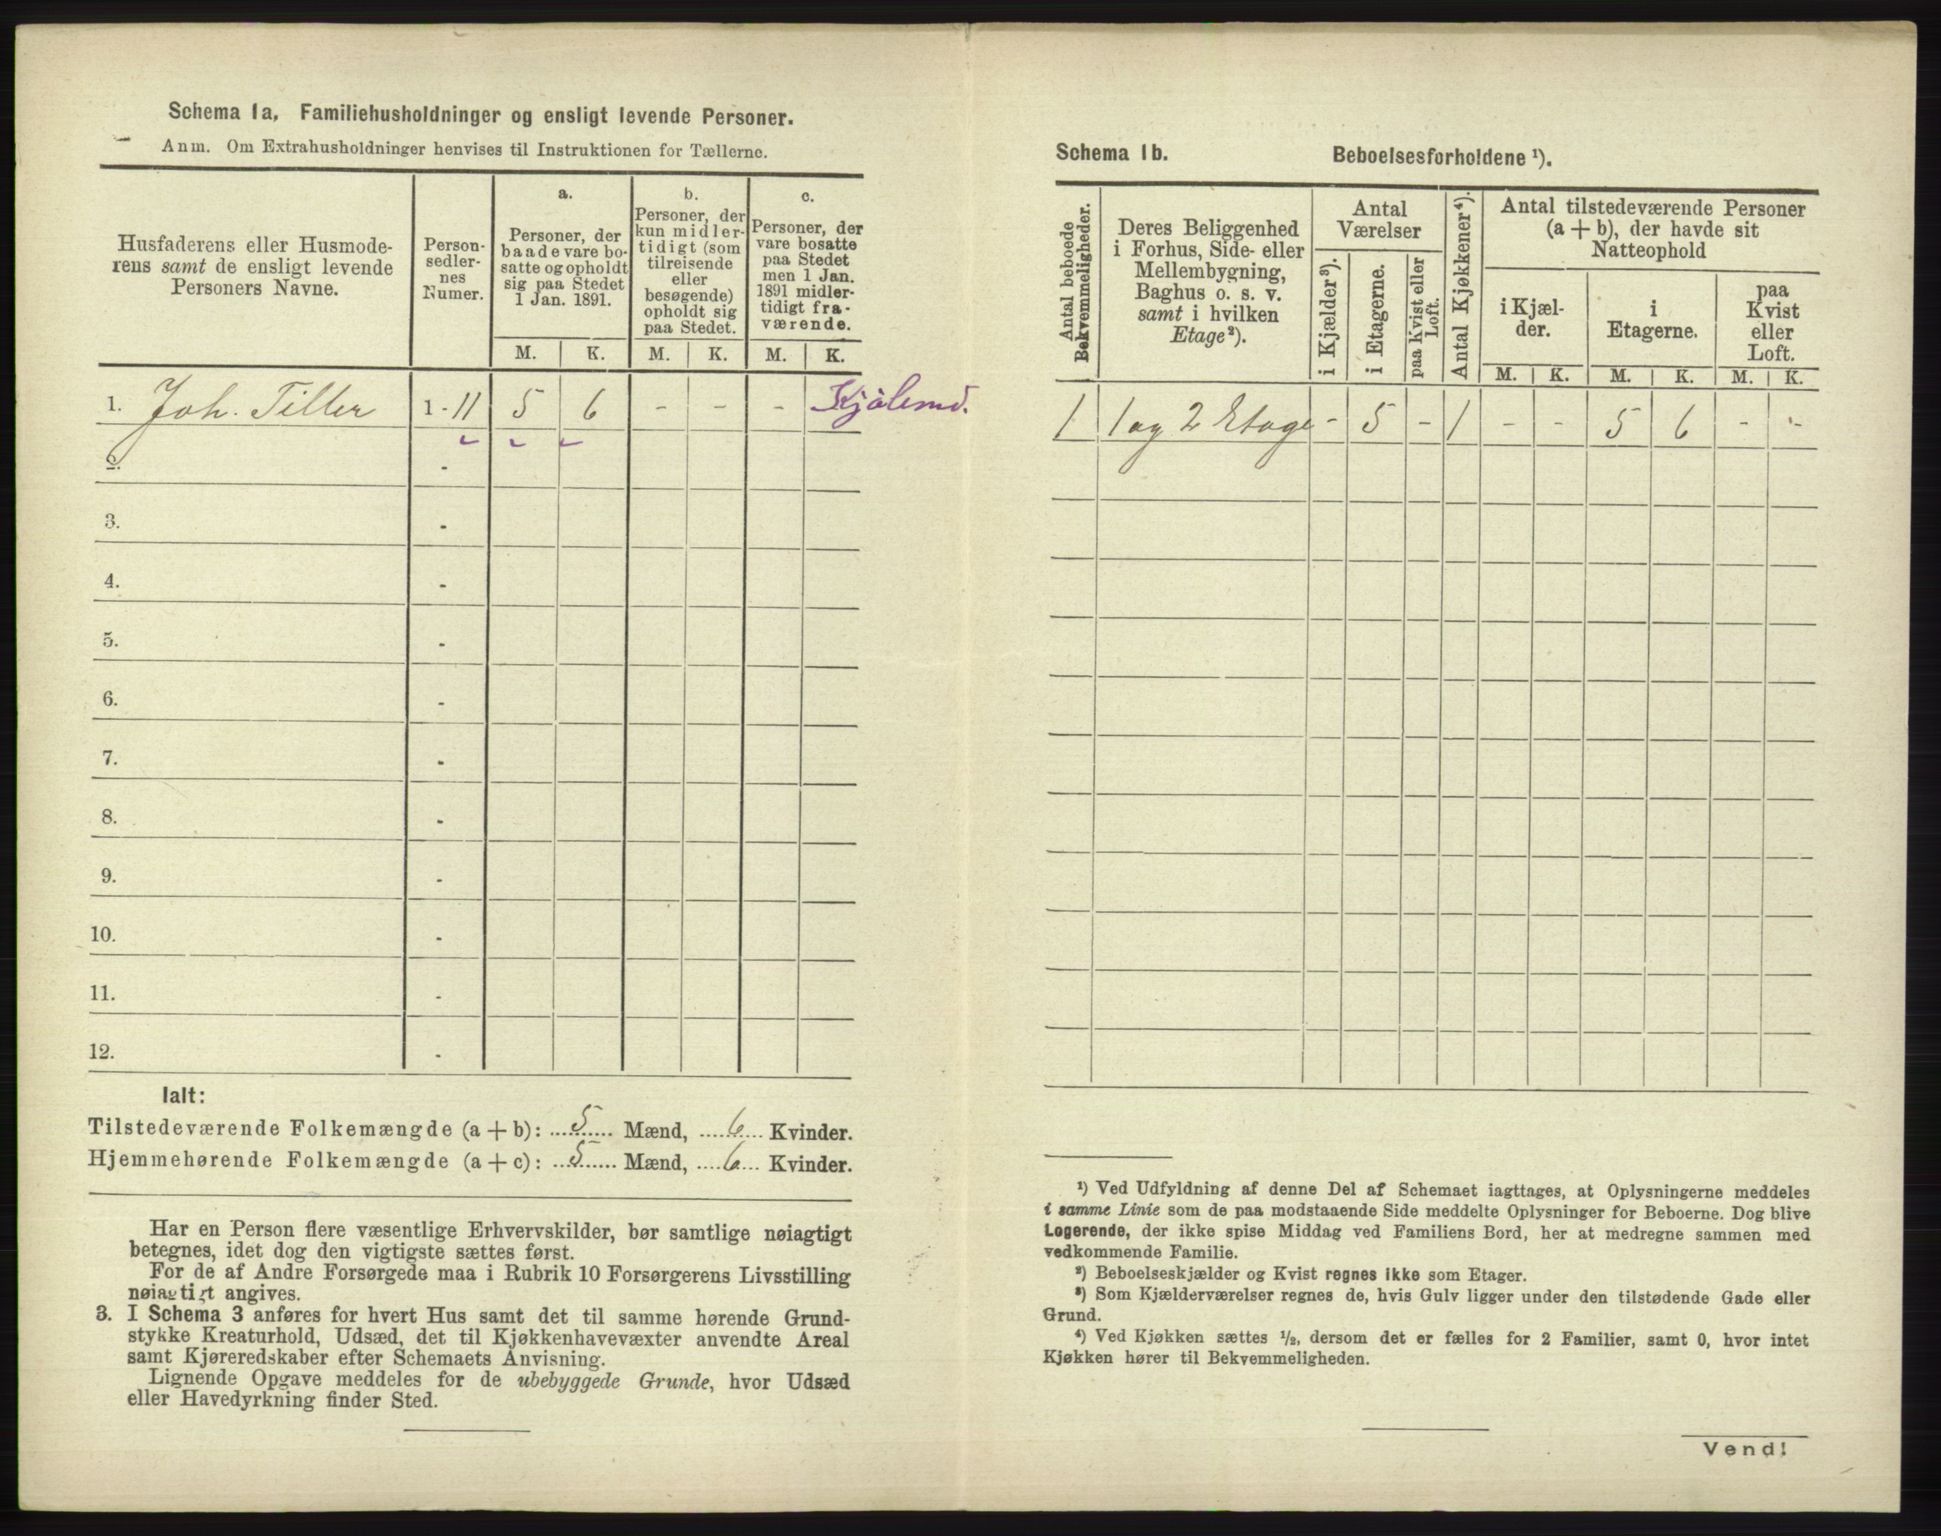 Schema 1a. Familiehusholdninger og ensligt levende Personer.
Anm. Om Extrahusholdninger henvises til Instruktionen for Tællerne.
Husfaderens eller Husmode-
rens samt de ensligt levende
Personers Navne.
Person-
sedler-
nes
Numer.
a.
Personer, der
baade vare bo-
satte og opholdt
sig paa Stedet
1 Jan. 1891.
b.
Personer, der
kun midler-
tidigt (som
tilreisende
eller
besøgende)
opholdt sig
paa Stedet.
c.
Personer, der
vare bosatte
paa Stedet
men 1 Jan.
1891 midler-
tidigt fra-
værende.
M. K. M. K. M. K.
1. Joh. Tiller 1 - 11 5 6 - - -
2. -
3. -
4. -
5. -
6. -
7. -
8. -
9. -
10. -
11. -
12. -
Ialt:
Tilstedeværende Folkemængde (a + b): 5 Mænd, 6 Kvinder.
Hjemmehørende Folkemængde (a + c): 5 Mænd, 6 Kvinder.
Har en Person flere væsentlige Erhvervskilder, bør samtlige nøiagtigt
betegnes, idet dog den vigtigste sættes først.
For de af Andre Forsørgede maa i Rubrik 10 Forsørgerens Livsstilling
nøiagtigt angives.
3. I Schema 3 anføres for hvert Hus samt det til samme hørende Grund-
stykke Kreaturhold, Udsæd, det til Kjøkkenhavevæxter anvendte Areal
samt Kjøreredskaber efter Schemaets Anvisning.
Lignende Opgave meddeles for de ubebyggede Grunde, hvor Udsæd
eller Havedyrkning finder Sted.
Schema 1b. Beboelsesforholdene ¹).
Antal beboede
Bekvemmeligheder.
Deres Beliggenhed
i Forhus, Side- eller
Mellembygning,
Baghus o. s. v.
samt i hvilken
Etage²).
Antal
Værelser
i Kjælder³).
i Etagerne.
paa Kvist eller
Loft.
Antal Kjøkkener⁴).
Antal tilstedeværende Personer
(a + b), der havde sit
Natteophold
i Kjæl-
der.
i
Etagerne.
paa
Kvist
eller
Loft.
M. K. M. K. M. K.
1 1 og 2 Etage - 5 - 1 - - 5 6 - -
¹) Ved Udfyldning af denne Del af Schemaet iagttages, at Oplysningerne meddeles
i samme Linie som de paa modstaaende Side meddelte Oplysninger for Beboerne. Dog blive
Logerende, der ikke spise Middag ved Familiens Bord, her at medregne sammen med
vedkommende Familie.
²) Beboelseskjælder og Kvist regnes ikke som Etager.
³) Som Kjælderværelser regnes de, hvis Gulv ligger under den tilstødende Gade eller
Grund.
⁴) Ved Kjøkken sættes ½, dersom det er fælles for 2 Familier, samt 0, hvor intet
Kjøkken hører til Bekvemmeligheden.
Vend!